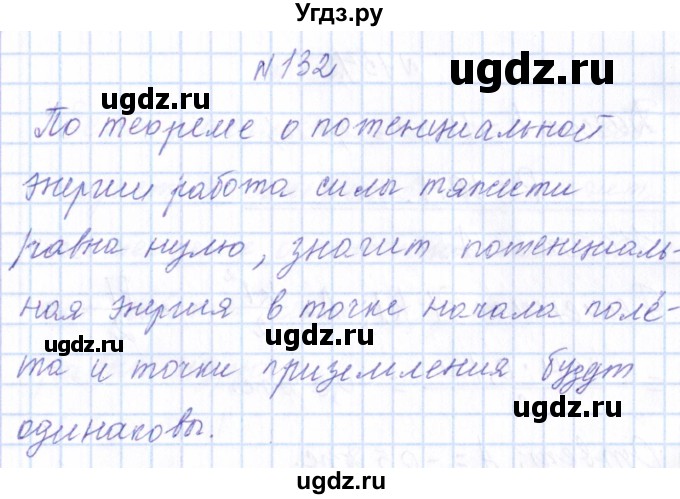 Угдз.ру
№132
ugdz.ru
ugdz.ru
По теореме о потенциальной
энергии работа силы тяжести
ugdz.ru
равна нулю, значит потенциаль-
ная энергия в точке начала полё-
ugdz.ru
ugdz.ru
та и точки приземления будут
ugdz.ru
одинаковы.
ugdz.ru